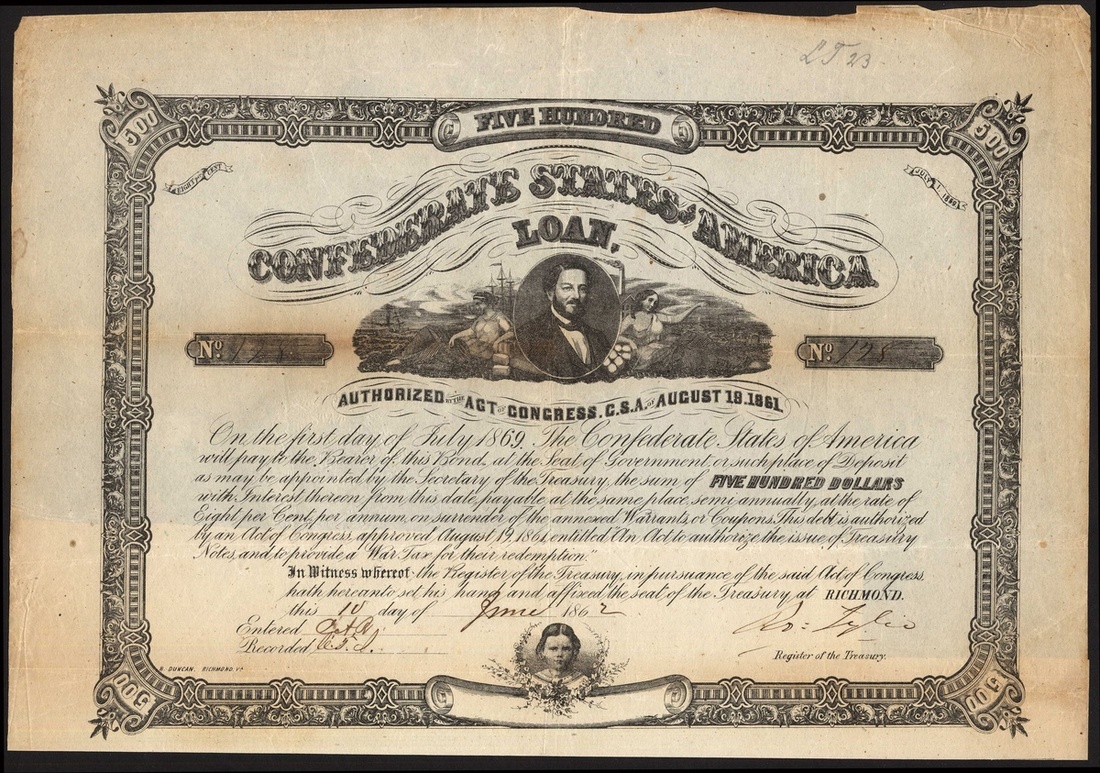 LT 23
FIVE HUNDRED
500
500
EIGHT PER CENT
JULY 1. 1869
CONFEDERATE STATES OF AMERICA
LOAN,
No. 125
No. 125
AUTHORIZED BY THE ACT OF CONGRESS. C.S.A. OF AUGUST 19. 1861.
On the first day of July 1869. The Confederate States of America
will pay to the Bearer of this Bond, at the Seat of Government, or such place of Deposit
as may be appointed by the Secretary of the Treasury, the sum of FIVE HUNDRED DOLLARS
with Interest thereon from this date, payable at the same place semi annually, at the rate of
Eight per Cent, per annum, on surrender of the annexed Warrants, or Coupons. This debt is authorized
by an Act of Congress, approved August 19, 1861, entitled "An Act to authorize the issue of Treasury
Notes, and to provide a War Tax for their redemption."
In Witness whereof the Register of the Treasury, in pursuance of the said Act of Congress,
hath hereunto set his hand and affixed the seal of the Treasury at RICHMOND.
this 10 day of June 1862
Entered
Recorded
Ro: Tyler
Register of the Treasury.
B. DUNCAN, RICHMOND, VA
500
500